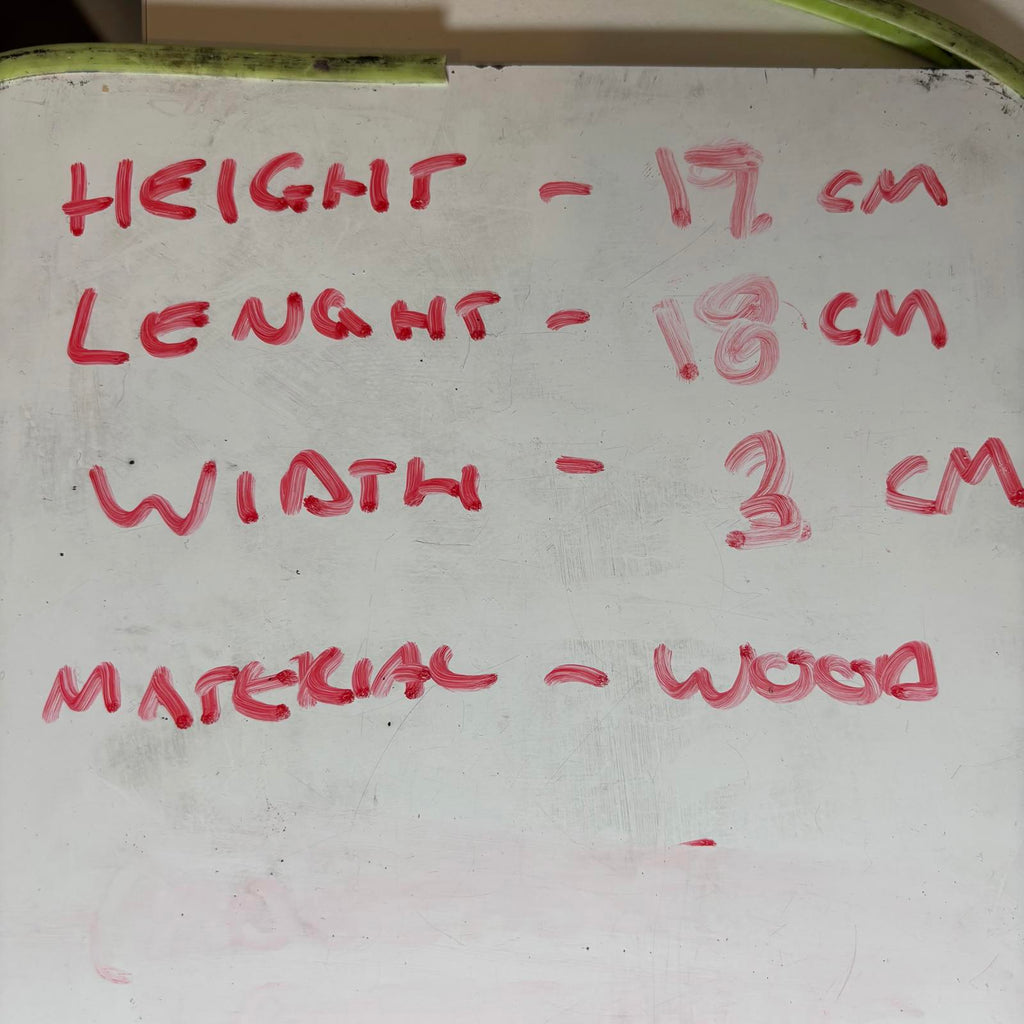 HEIGHT - 17 CM
LENGHT - 18 CM
WIDTH - 2 CM
MATERIAL - WOOD